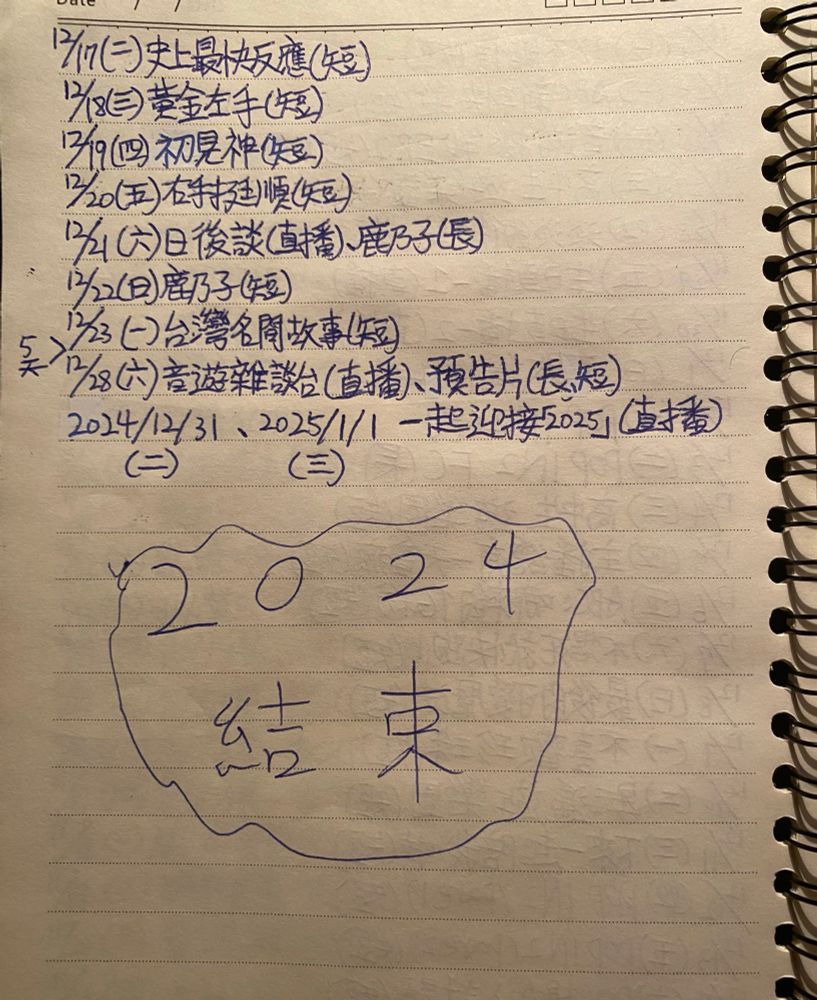 Date / /
12/17(二)史上最快反應(短)
12/18(三)黃金左手(短)
12/19(四)初見神(短)
12/20(五)右手挺順(短)
12/21(六)日後談(直播)、鹿乃子(長)
12/22(日)鹿乃子(短)
5天>
12/23(一)台灣名間故事(短)
12/28(六)音遊雜談台(直播)、預告片(長、短)
2024/12/31、2025/1/1 一起迎接「2025」(直播)
(二) (三)
2024
結束